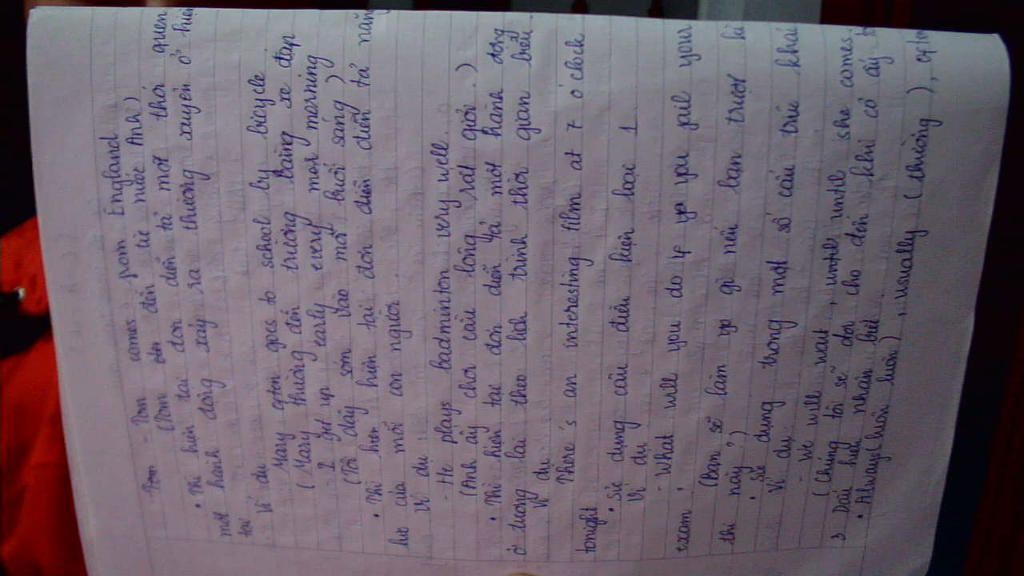 Tom - Tom comes from England
(Tom đến từ nước Anh)
• Thì hiện tại đơn diễn tả một thói quen
một hành động xảy ra thường xuyên ở hiện
tại
Ví dụ
Mary often goes to school by bicycle
(Mary thường đến trường bằng xe đạp
- I get up early every morning
(Tôi dậy sớm vào mỗi buổi sáng)
• Thì hiện tại đơn diễn tả năng
lực của mỗi con người
Ví dụ
- He plays badminton very well.
(Anh ấy chơi cầu lông rất giỏi.)
• Thì hiện tại đơn diễn tả một hành động
ở tương lai theo lịch trình thời gian biểu.
Ví dụ
There's an interesting film at 7 o'clock
tonight
• Sử dụng câu điều kiện loại 1
Ví dụ
- What will you do if you fail your
exam.
(bạn sẽ làm gì nếu bạn trượt kì
thi này?)
• Sử dụng trong một số cấu trúc khác
Ví dụ
- We will wait, until she comes.
(Chúng tôi sẽ đợi cho đến khi cô ấy
3 Dấu hiệu nhận biết
• Always (luôn luôn), usually (thường), often